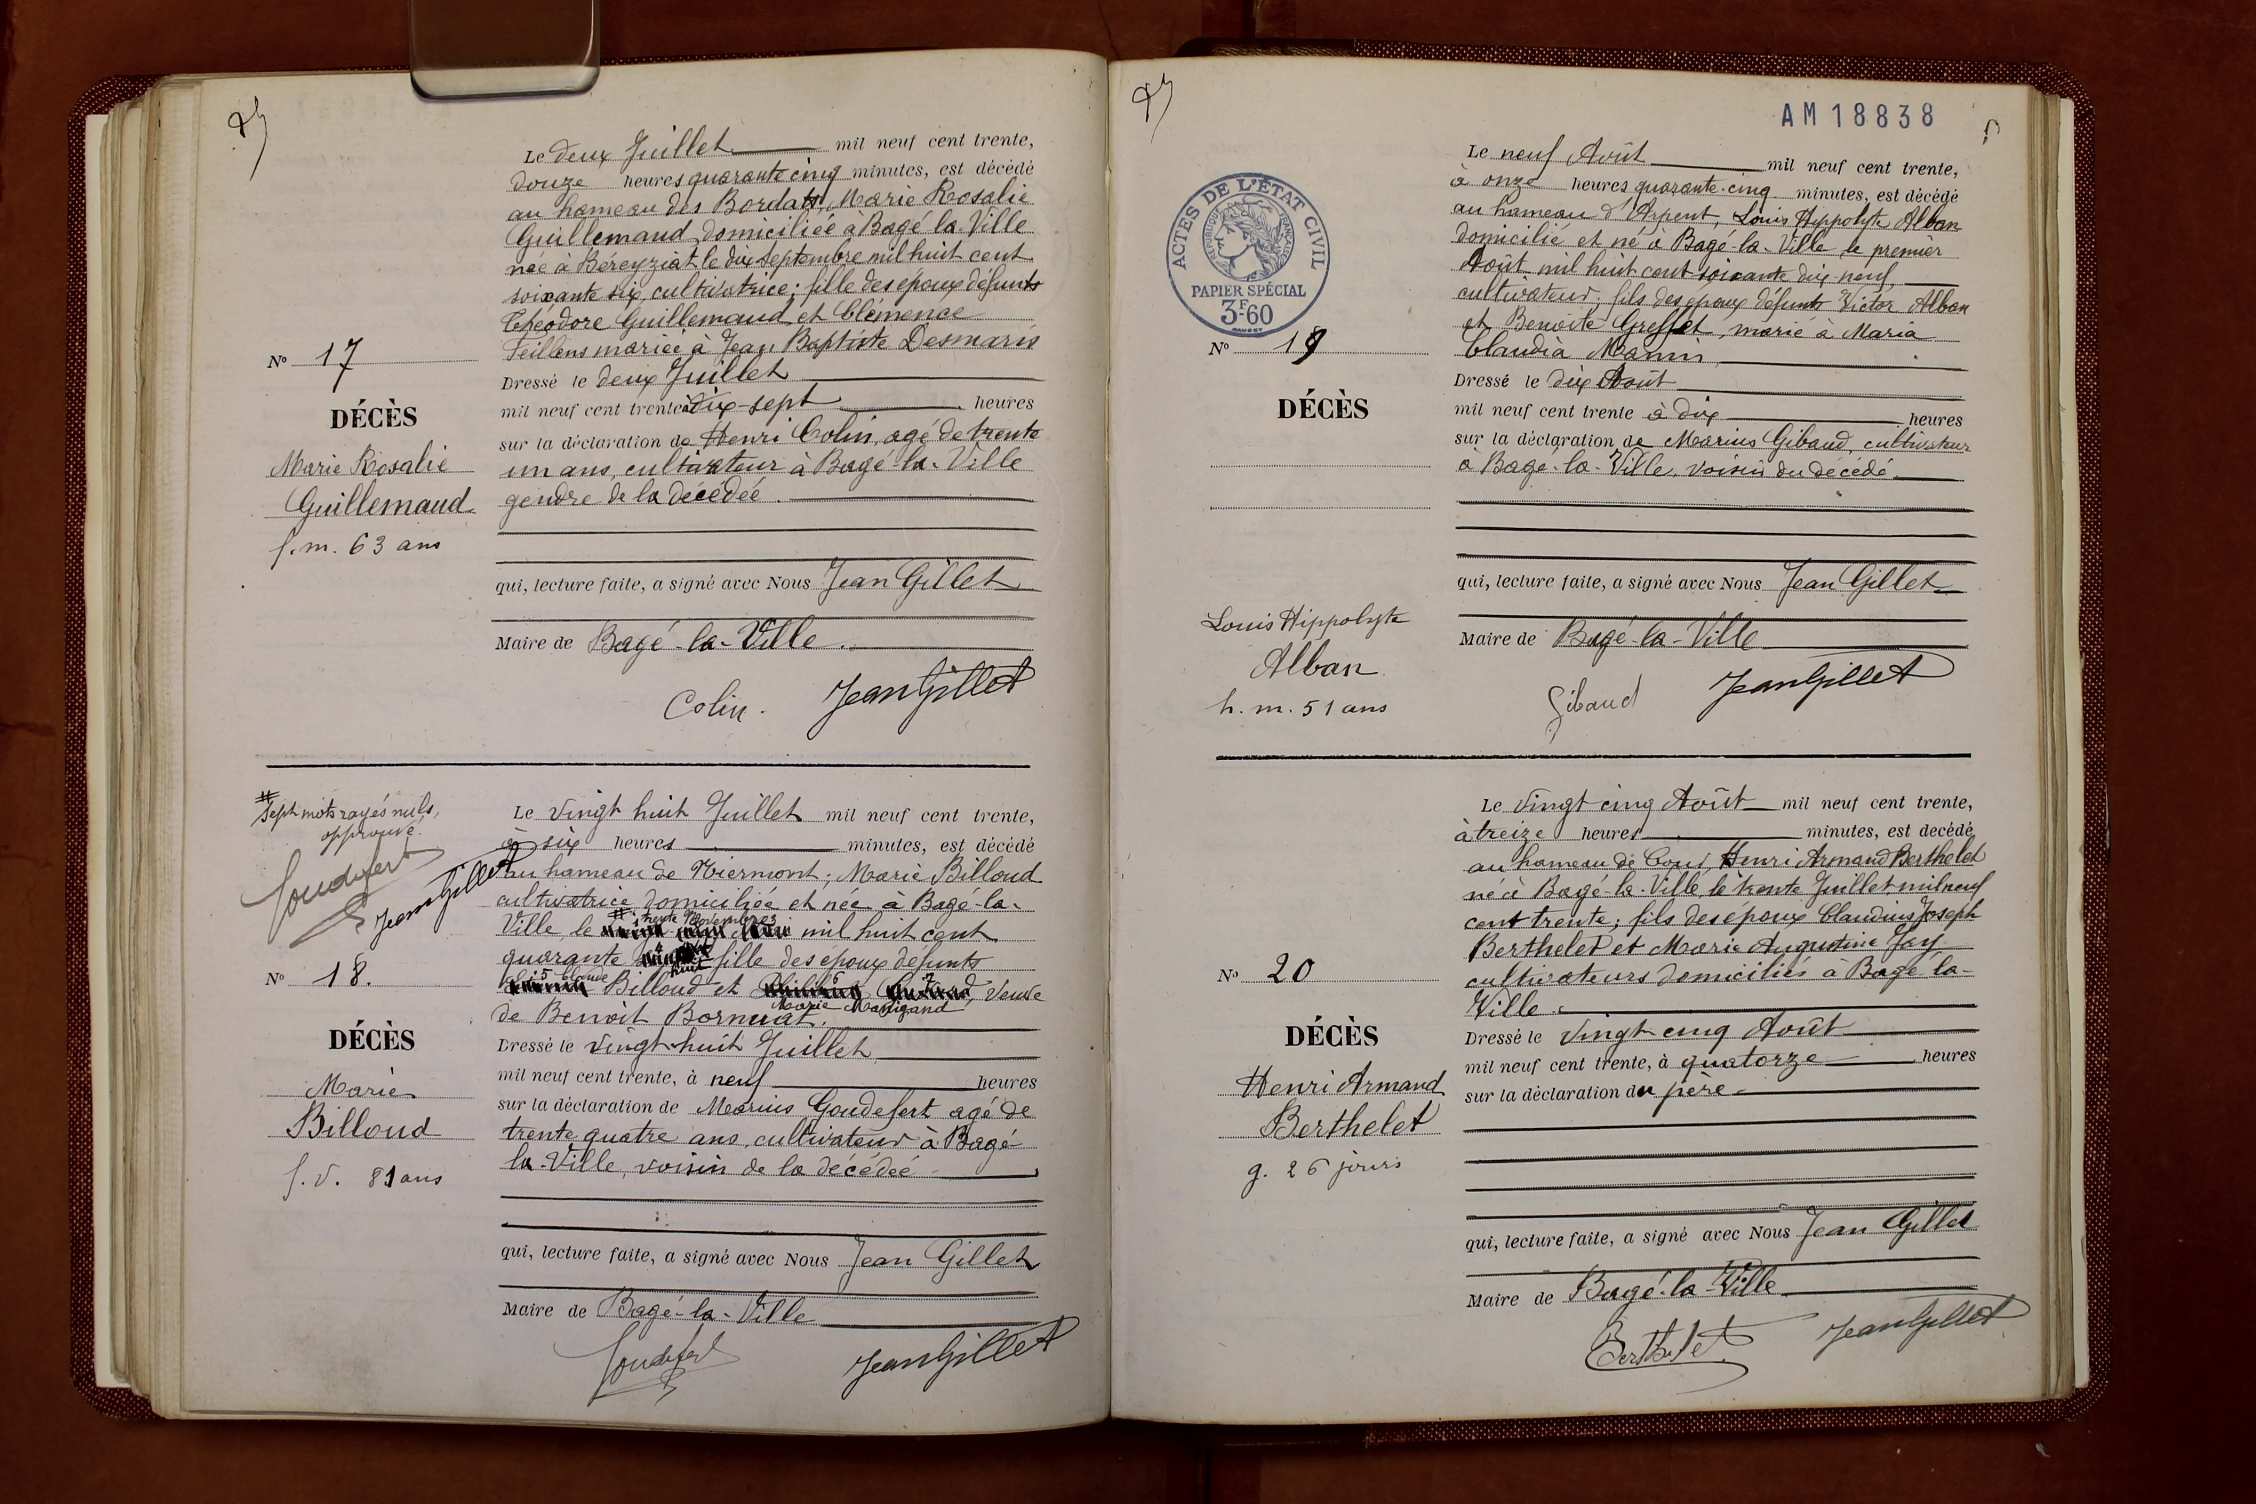 Le deux Juillet mil neuf cent trente,
douze heures quarante cinq minutes, est décédé
au hameau des Bordats, Marie Rosalie
Guillemaud domiciliée à Bagé-la-Ville
née à Béreyziat le dix septembre mil huit cent
soixante six, cultivatrice; fille des époux défunts
Théodore Guillemaud et Clémence
Feillens mariée à Jean Baptiste Desmaris
No 17
Dressé le deux Juillet
mil neuf cent trente à dix-sept heures
DÉCÈS
sur la déclaration de Henri Colin, agé de trente
Marie Rosalie
un ans, cultivateur à Bagé-la-Ville
Guillemaud
gendre de la décédée.
f. m. 63 ans
qui, lecture faite, a signé avec Nous Jean Gillet
Maire de Bagé-la-Ville.
Colin. Jean Gillet
# Sept mots rayés nuls,
approuvé.
Goudefert
Jean Gillet
Le vingt huit Juillet mil neuf cent trente,
à six heures minutes, est décédé
au hameau de Niermont; Marie Billoud
cultivatrice domiciliée et née à Bagé-la-
# trente Novembre
Ville, le mil huit cent
quarante huit fille des époux défunts
No 18.
Claude Billoud et veuve
Marie Manigand
de Benoît Bornuat.
DÉCÈS
Dressé le vingt-huit Juillet
mil neuf cent trente, à neuf heures
Marie
sur la déclaration de Marius Goudefert agé de
Billoud
trente quatre ans, cultivateur à Bagé
la-Ville, voisin de la décédée
f. v. 81 ans
qui, lecture faite, a signé avec Nous Jean Gillet
Maire de Bagé-la-Ville
Goudefert Jean Gillet
AM 18838
Le neuf Août mil neuf cent trente,
à onze heures quarante-cinq minutes, est décédé
au hameau d'Arpent, Louis Hippolyte Alban
domicilié et né à Bagé-la-Ville le premier
Août mil huit cent soixante dix-neuf,
cultivateur; fils des époux défunts Victor Alban
et Benoite Greffet, marié à Maria
Claudia Manin
ACTES DE L'ÉTAT CIVIL
RÉPUBLIQUE FRANÇAISE
PAPIER SPÉCIAL
3F.60
No 19
Dressé le dix Août
DÉCÈS
mil neuf cent trente à dix heures
sur la déclaration de Marius Gibaud, cultivateur
à Bagé-la-Ville, voisin du décédé
qui, lecture faite, a signé avec Nous Jean Gillet
Louis Hippolyte
Maire de Bagé-la-Ville
Alban
h. m. 51 ans
Gibaud Jean Gillet
Le vingt cinq Août mil neuf cent trente,
à treize heures minutes, est décédé
au hameau de Cous, Henri Armand Berthelet
né à Bagé-la-Ville le trente Juillet mil neuf
cent trente; fils des époux Claudius Joseph
Berthelet et Marie Augustine Jay
No 20
cultivateurs domiciliés à Bagé-la-
Ville.
DÉCÈS
Dressé le vingt cinq Août
mil neuf cent trente, à quatorze heures
Henri Armand
sur la déclaration du père
Berthelet
g. 26 jours
qui, lecture faite, a signé avec Nous Jean Gillet
Maire de Bagé-la-Ville
Berthelet Jean Gillet